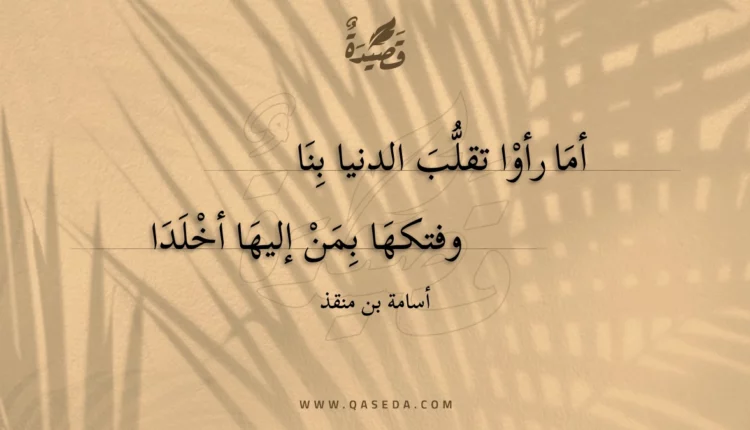 قَصِيدَةٌ
أمَا رأوْا تقلُّبَ الدنيا بِنَا
وفتكهَا بِمَنْ إليهَا أخْلَدَا
أسامة بن منقذ
WWW.QASEDA.COM